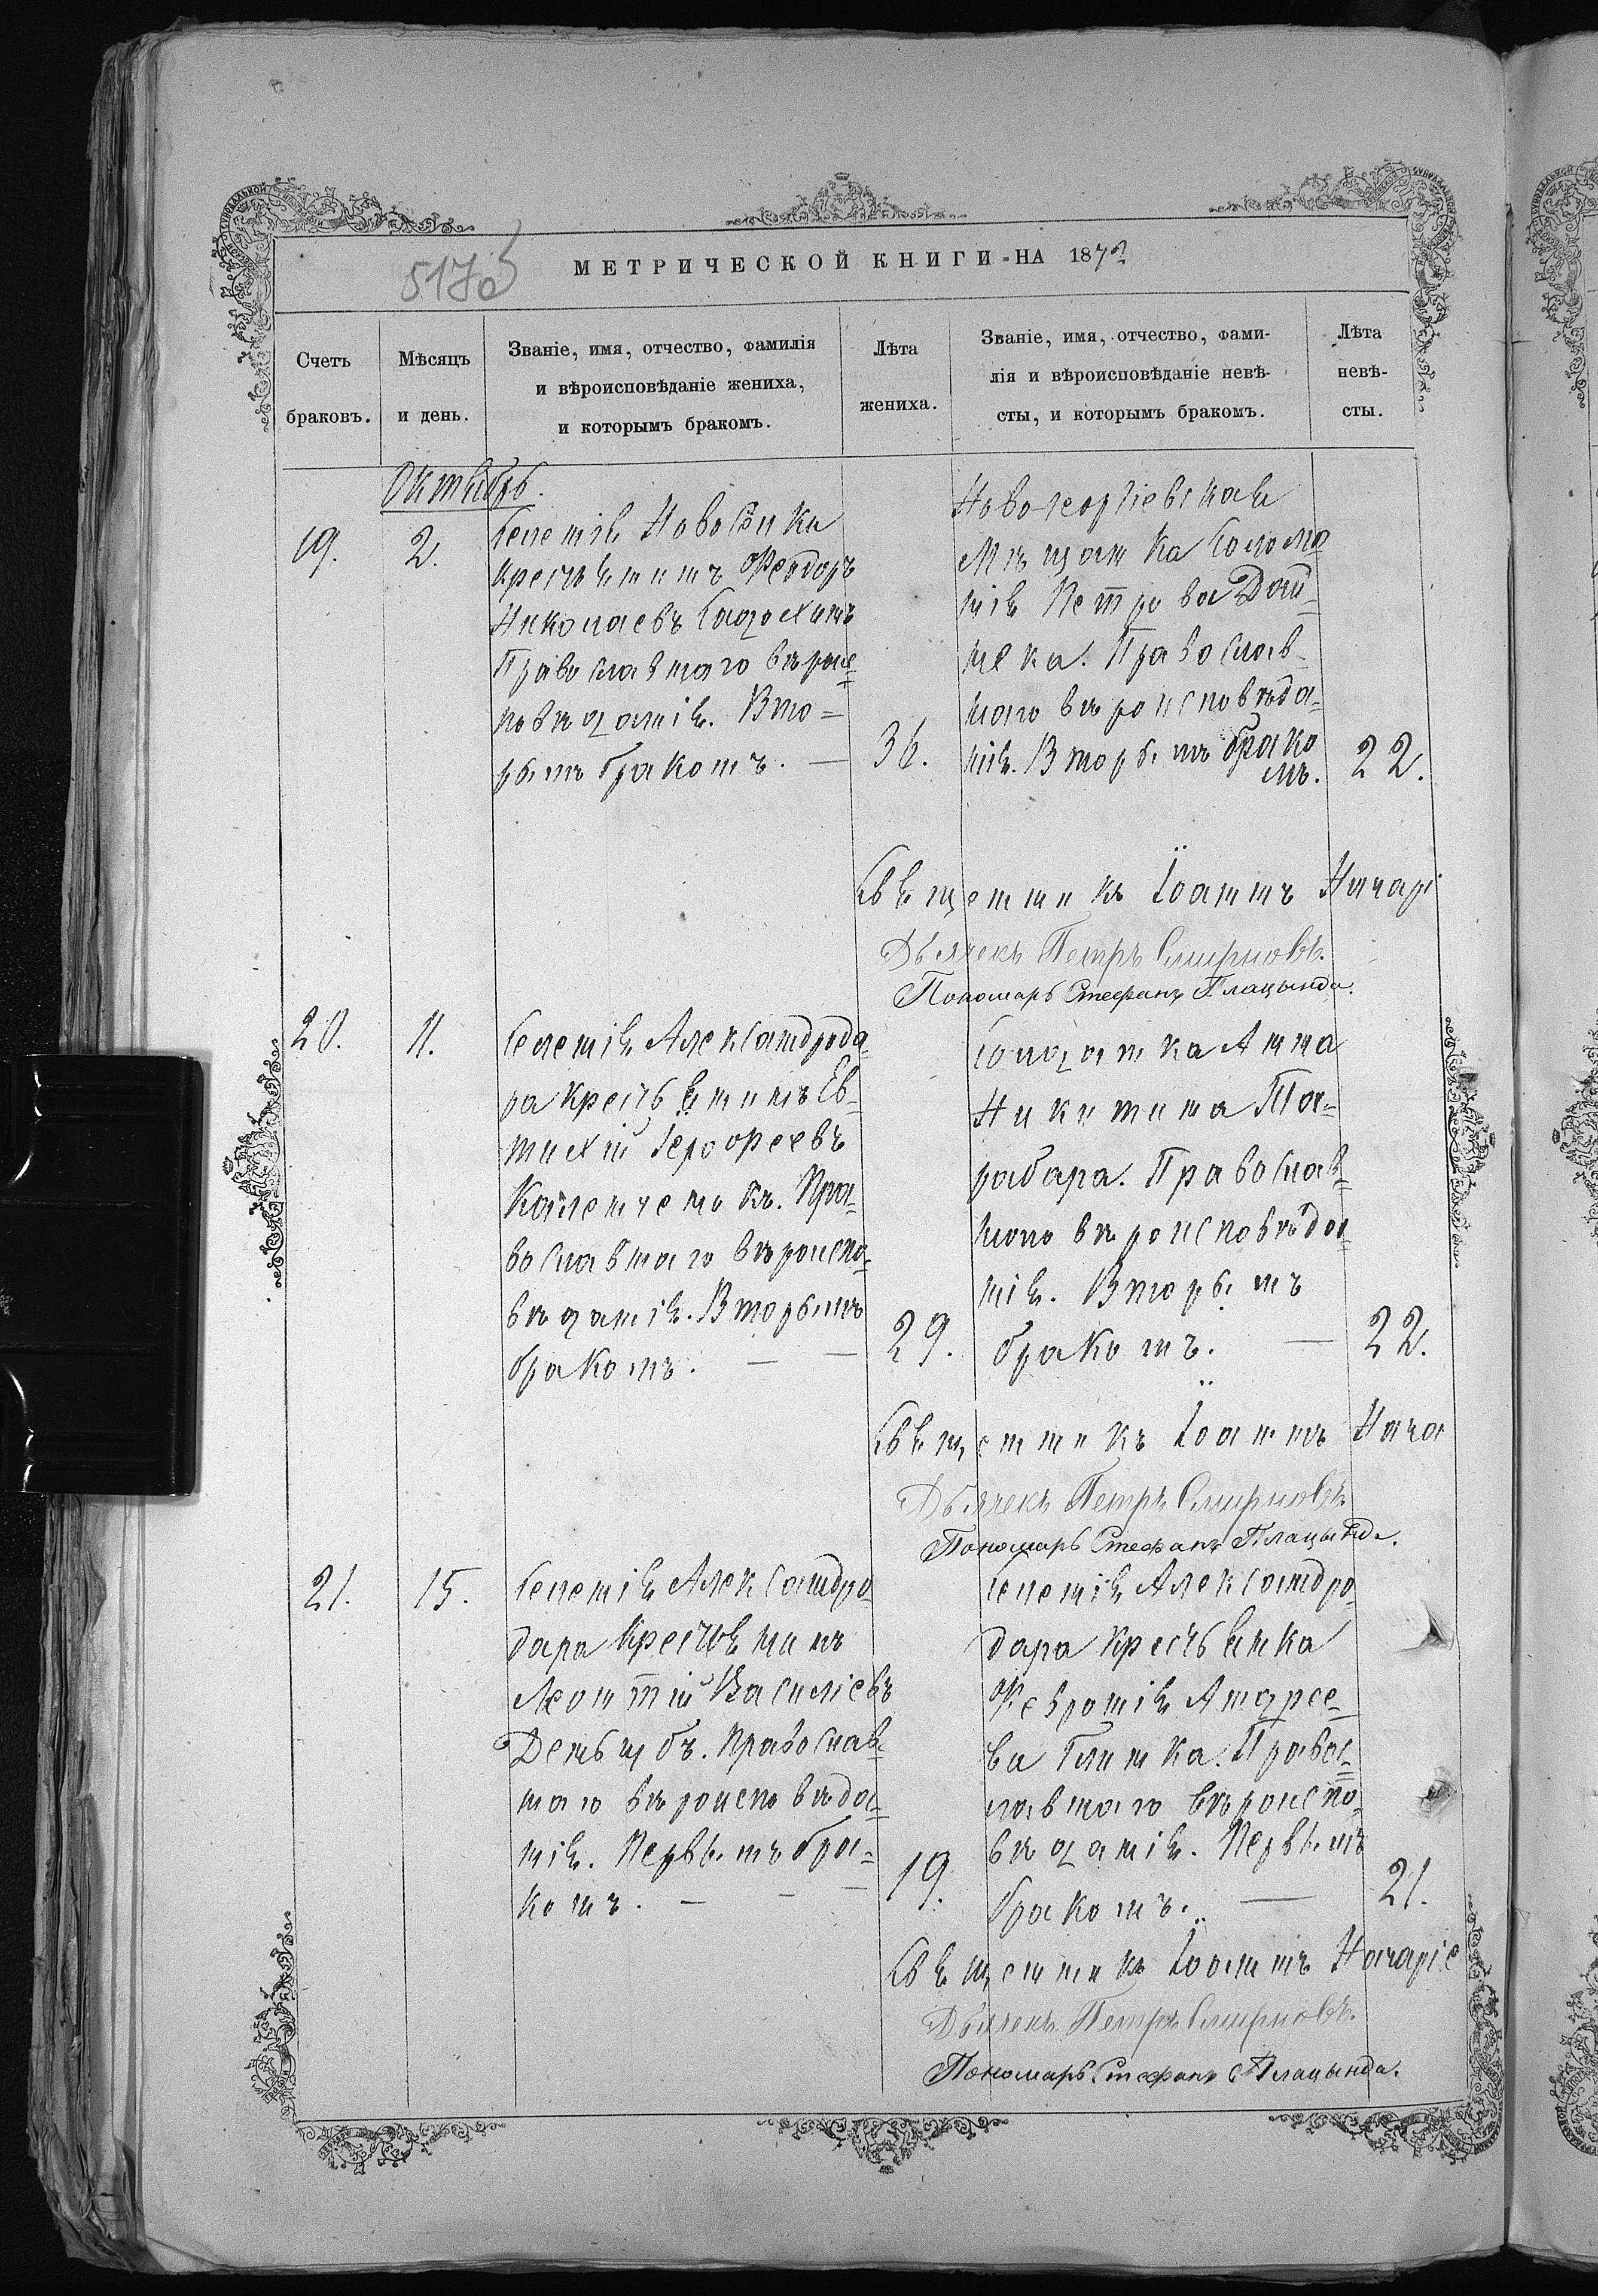 МЕТРИЧЕСКОЙ КНИГИ НА 1872
Счетъ браковъ.
Мѣсяцъ и день.
Званіе, имя, отчество, фамилія
и вѣроисповѣданіе жениха,
и которымъ бракомъ.
Лѣта жениха.
Званіе, имя, отчество, фами-
лія и вѣроисповѣданіе невѣ-
сты, и которымъ бракомъ.
Лѣта невѣ-
сты.
Октябрь.
19.
2.
Селенія
крестьянинъ Феодоръ
Николаевъ
Православнаго вѣроис=
повѣданія. Вто=
рымъ бракомъ. —
36.
Новогеоргіевская
Мѣщанка Соломо
нія Петрова
Православ-
наго вѣроисповѣда=
нія. Вторымъ брако
мъ.
22.
Священникъ Іоаннъ
Дьячекъ Петръ Смирновъ.
Пономарь Стефанъ Плацында.
20.
11.
Селенія Александрода-
ра крестьянинъ Ев-
тихій Іерофеевъ
Каленченокъ. Пра-
вославнаго вѣроиспо-
вѣданія. Вторымъ
бракомъ. — —
29.
Солдатка Анна
Никитина Та-
рабара. Православ-
наго вѣроисповѣда-
нія. Вторымъ
бракомъ. —
22.
Священникъ Іоаннъ
Дьячекъ Петръ Смирновъ
Пономарь Стефанъ Плацында.
21.
15.
Селенія Александро-
дара Крестьянинъ
Леонтій Василіевъ
Деньщбъ. Православ-
наго вѣроисповѣда-
нія. Первымъ бра-
комъ. — — —
19.
Селенія Александро-
дара Крестьянка
Февронія Андрее-
ва Глинка. Правос=
лавнаго вѣроиспо-
вѣданія. Первымъ
бракомъ. —
21.
Священникъ Іоаннъ
Дьячекъ Петръ Смирновъ.
Пономарь Стефанъ Плацында.